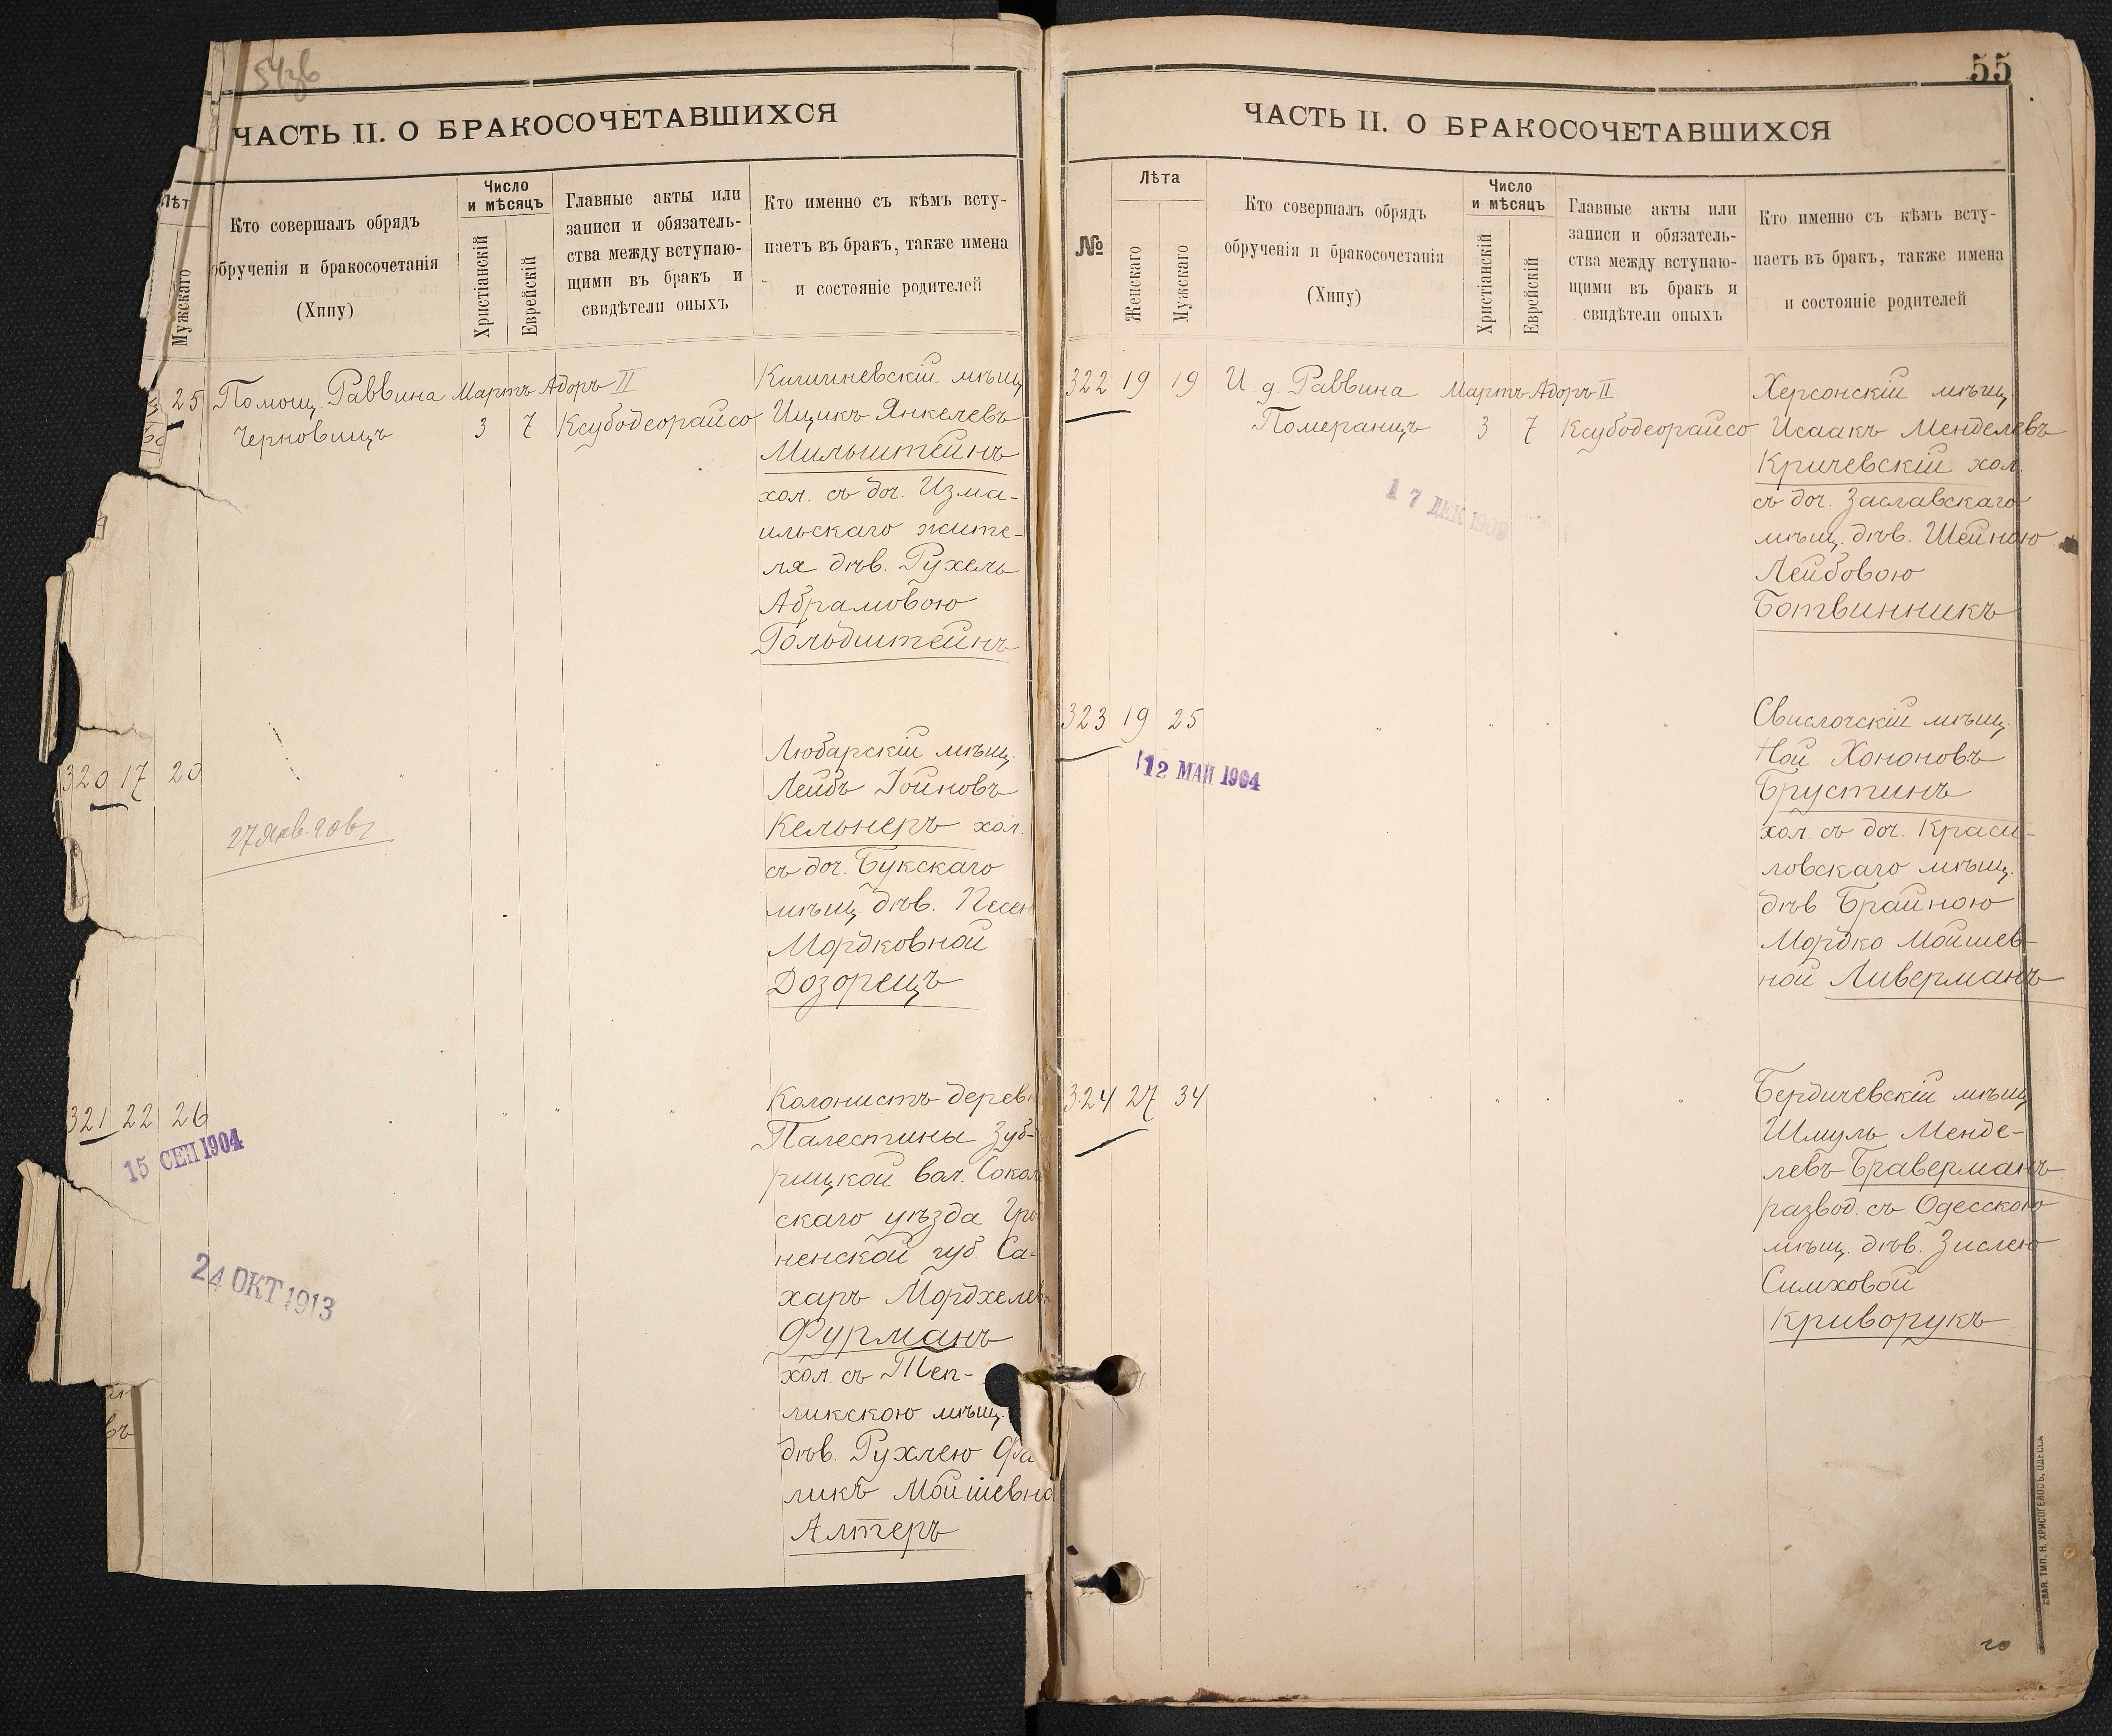 54об
ЧАСТЬ II. О БРАКОСОЧЕТАВШИХСЯ
Лѣт
Мужскаго
Кто совершалъ обрядъ
обрученія и бракосочетанія
(Хипу)
Число
и мѣсяцъ
Христіанскій
Еврейскій
Главные акты или
записи и обязатель-
ства между вступаю-
щими въ бракъ и
свидѣтели оныхъ
Кто именно съ кѣмъ всту-
паетъ въ бракъ, также имена
и состояніе родителей
25 Помощ. Раввина Мартъ Адоръ II
Черновицъ 3 7 Ксубодеорайсо
Кишиневскій мѣщ.
Ицикъ Янкелевъ
Мильштейнъ
хол. съ доч. Изма-
ильскаго жите-
ля дѣв. Рухель
Абрамовою
Гольдштейнъ
320 17 20
27 Янв.
Любарскій мѣщ.
Лейбъ Іойновъ
Кельнеръ хол.
съ доч. Букскаго
мѣщ. дѣв. Песен
Мордковной
Дозорецъ
321 22 26
15 СЕН 1904
24 ОКТ 1913
Колонистъ дерев
Палестины Зуб-
рицкой вол. Сокол
скаго уѣзда Гро
ненской губ. Са-
харъ Мордхелев
Фурманъ
хол. съ Теп-
ликскою мѣщ.
дѣв. Рухлею Фа
ликъ Мойшевно
Алтеръ
55
ЧАСТЬ II. О БРАКОСОЧЕТАВШИХСЯ
№
Лѣта
Женскаго
Мужскаго
Кто совершалъ обрядъ
обрученія и бракосочетанія
(Хипу)
Число
и мѣсяцъ
Христіанскій
Еврейскій
Главные акты или
записи и обязатель-
ства между вступаю-
щими въ бракъ и
свидѣтели оныхъ
Кто именно съ кѣмъ всту-
паетъ въ бракъ, также имена
и состояніе родителей
322 19 19 И. д. Раввина Мартъ Адоръ II
Померанцъ 3 7 Ксубодеорайсо
17 ДЕК 1909
Херсонскій мѣщ.
Исаакъ Менделевъ
Кричевскій хол.
съ доч. Заславскаго
мѣщ. дѣв. Шейною
Лейбовою
Ботвинникъ
323 19 25
12 МАЙ 1904
Свислочскій мѣщ.
Ной Хононовъ
Брустинъ
хол. съ доч. Краси-
ловскаго мѣщ.
дѣв Брайною
Мордко Мойшев-
ной Ливерманъ
324 27 34
Бердичевскій мѣщ
Шмуль Менде-
левъ Браверманъ
развод. съ Одесскою
мѣщ. дѣв. Зислею
Симховой
Криворукъ
ТИП. Н. ХРИСОГЕЛОСЪ, ОДЕССА